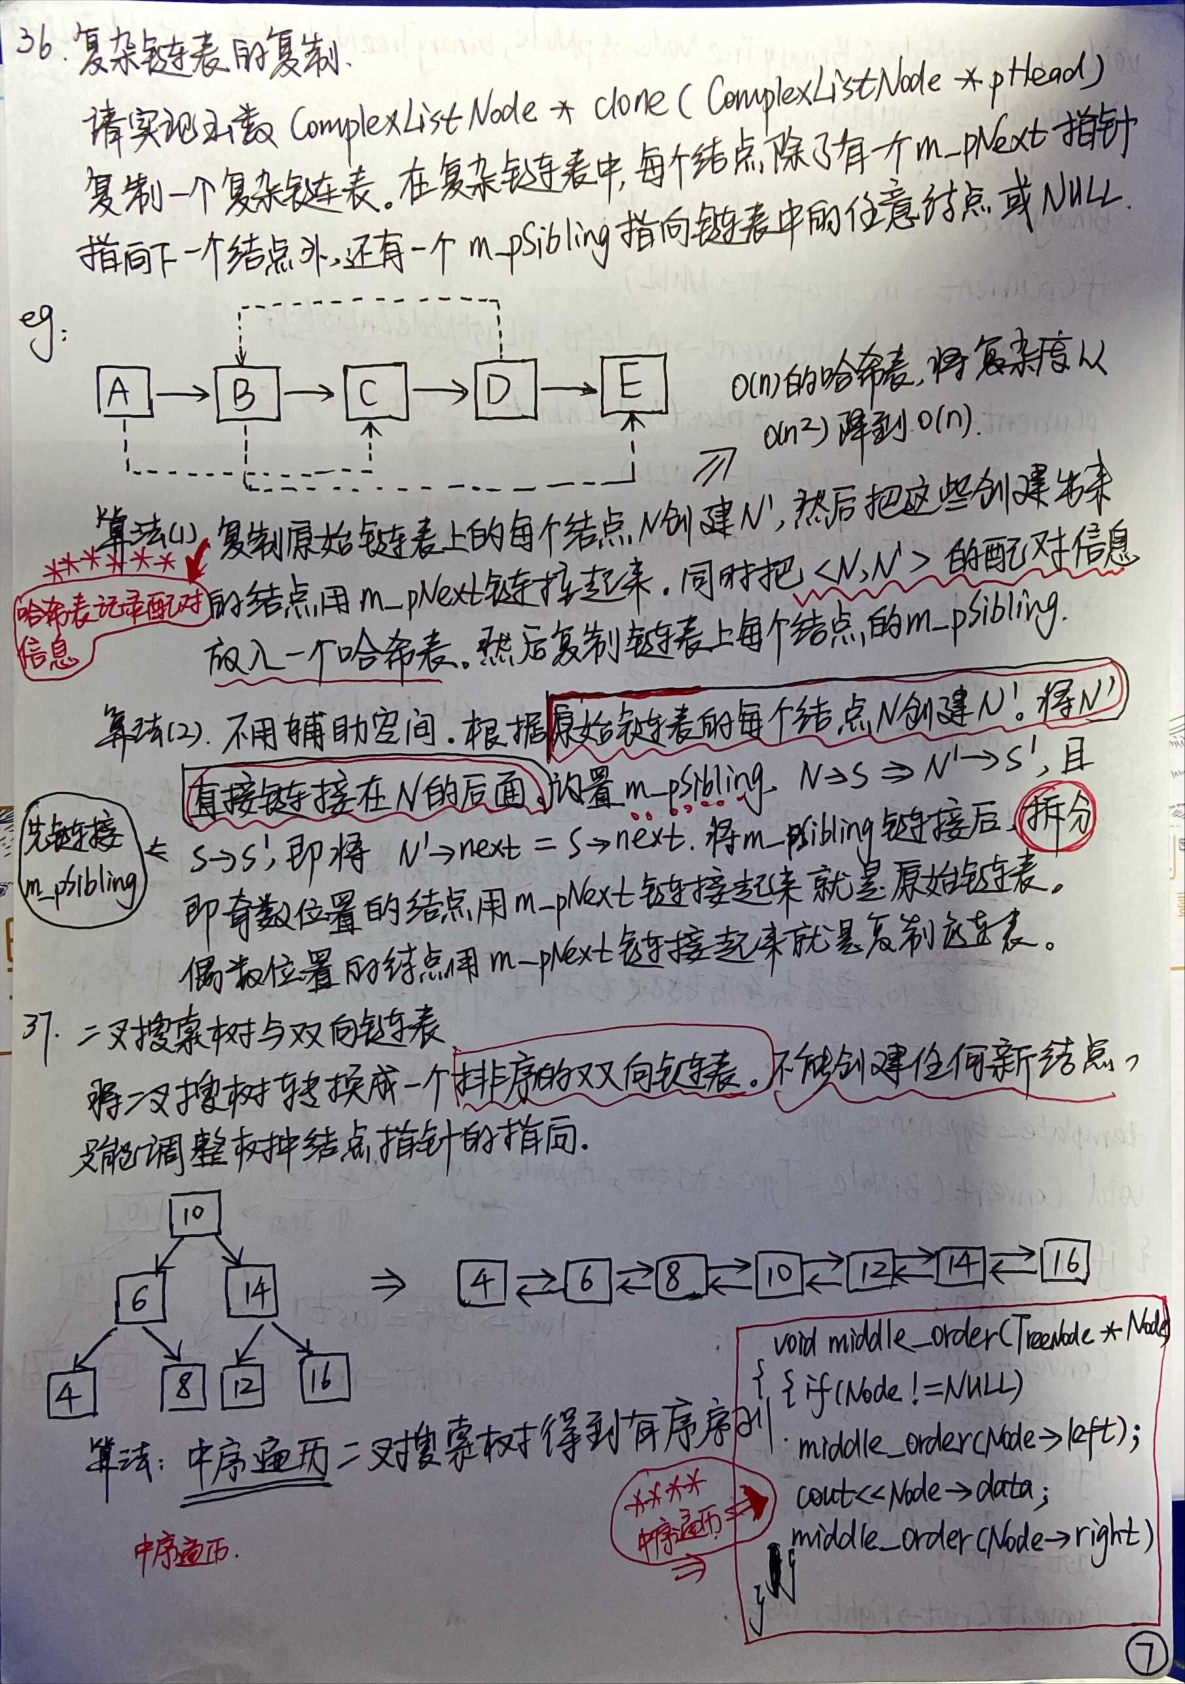 36. 复杂链表的复制.
请实现函数 ComplexListNode * clone ( ComplexListNode * pHead)
复制一个复杂链表。在复杂链表中,每个结点除了有一个 m_pNext 指针
指向下一个结点外,还有一个 m_pSibling 指向链表中的任意结点或 NULL.
eg:
A B C D E
O(n)的哈希表,将复杂度从
O(n²)降到O(n).
算法(1). 复制原始链表上的每个结点N创建N',然后把这些创建出来
******
哈希表记录配对
信息
的结点用 m_pNext 链接起来. 同时把 <N,N'> 的配对信息
放入一个哈希表。然后复制链表上每个结点的m_pSibling.
算法(2). 不用辅助空间. 根据原始链表的每个结点N创建N'。将N'
直接链接在N的后面。设置m_pSibling. N→S ⇒ N'→S', 且
先链接
m_pSibling
S→S', 即将 N'→next = S→next. 将m_pSibling链接后, 拆分
即奇数位置的结点用m_pNext链接起来就是原始链表。
偶数位置的结点用m_pNext链接起来就是复制链表。
37. 二叉搜索树与双向链表
将二叉搜树转换成一个排序的双向链表。不能创建任何新结点,
只能调整树中结点指针的指向.
10
6 14
4 8 12 16
⇒ 4 6 8 10 12 14 16
算法: 中序遍历二叉搜索树得到有序序列.
中序遍历.
****
中序遍历
void middle_order(TreeNode * Node)
{ { if(Node != NULL)
middle_order(Node→left);
cout<<Node→data;
middle_order(Node→right)
}
}
7